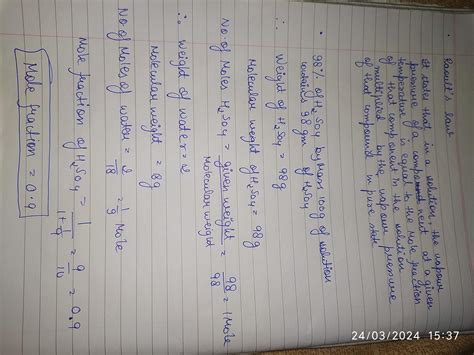 Raoult's law
It states that in a solution, the vapour
pressure of a component at a given
temperature is equal to the mole fraction
of that component in the solution
multiplied by the vapour pressure
of that compound in pure state
• 98% of H₂SO₄ by mass 100g of solution
contains 98 gm of H₂SO₄
∴ Weight of H₂SO₄ = 98g
Molecular weight of H₂SO₄ = 98g
No. of Moles H₂SO₄ = given weight / Molecular weight = 98/98 = 1 Mole
∴ Weight of water = 2
Molecular weight = 18g
No of Moles of water = 2/18 = 1/9 Mole
Mole fraction of H₂SO₄ = 1/(1+1/9) = 9/10 = 0.9
Mole fraction = 0.9
24/03/2024 15:37